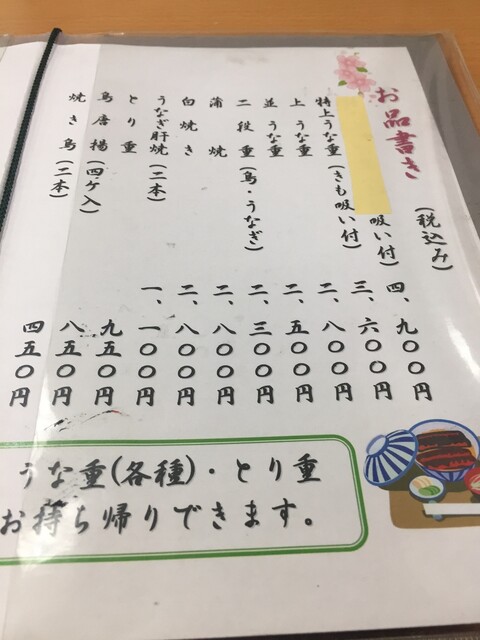 お品書き
(税込み)
吸い付) 四、九〇〇円
特上うな重(きも吸い付) 三、六〇〇円
上うな重 二、八〇〇円
並うな重 二、五〇〇円
二段重(鳥・うなぎ) 二、三〇〇円
蒲焼 二、八〇〇円
白焼き 二、八〇〇円
うなぎ肝焼(二本) 一、一〇〇円
とり重 九五〇円
鳥唐揚(四ケ入) 八五〇円
焼き鳥(二本) 四五〇円
うな重(各種)・とり重
お持ち帰りできます。